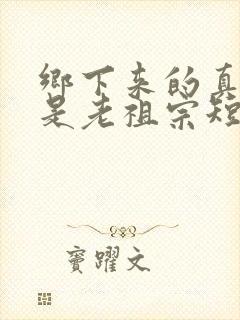 鄉下來的真
是老祖宗短
竇躍文